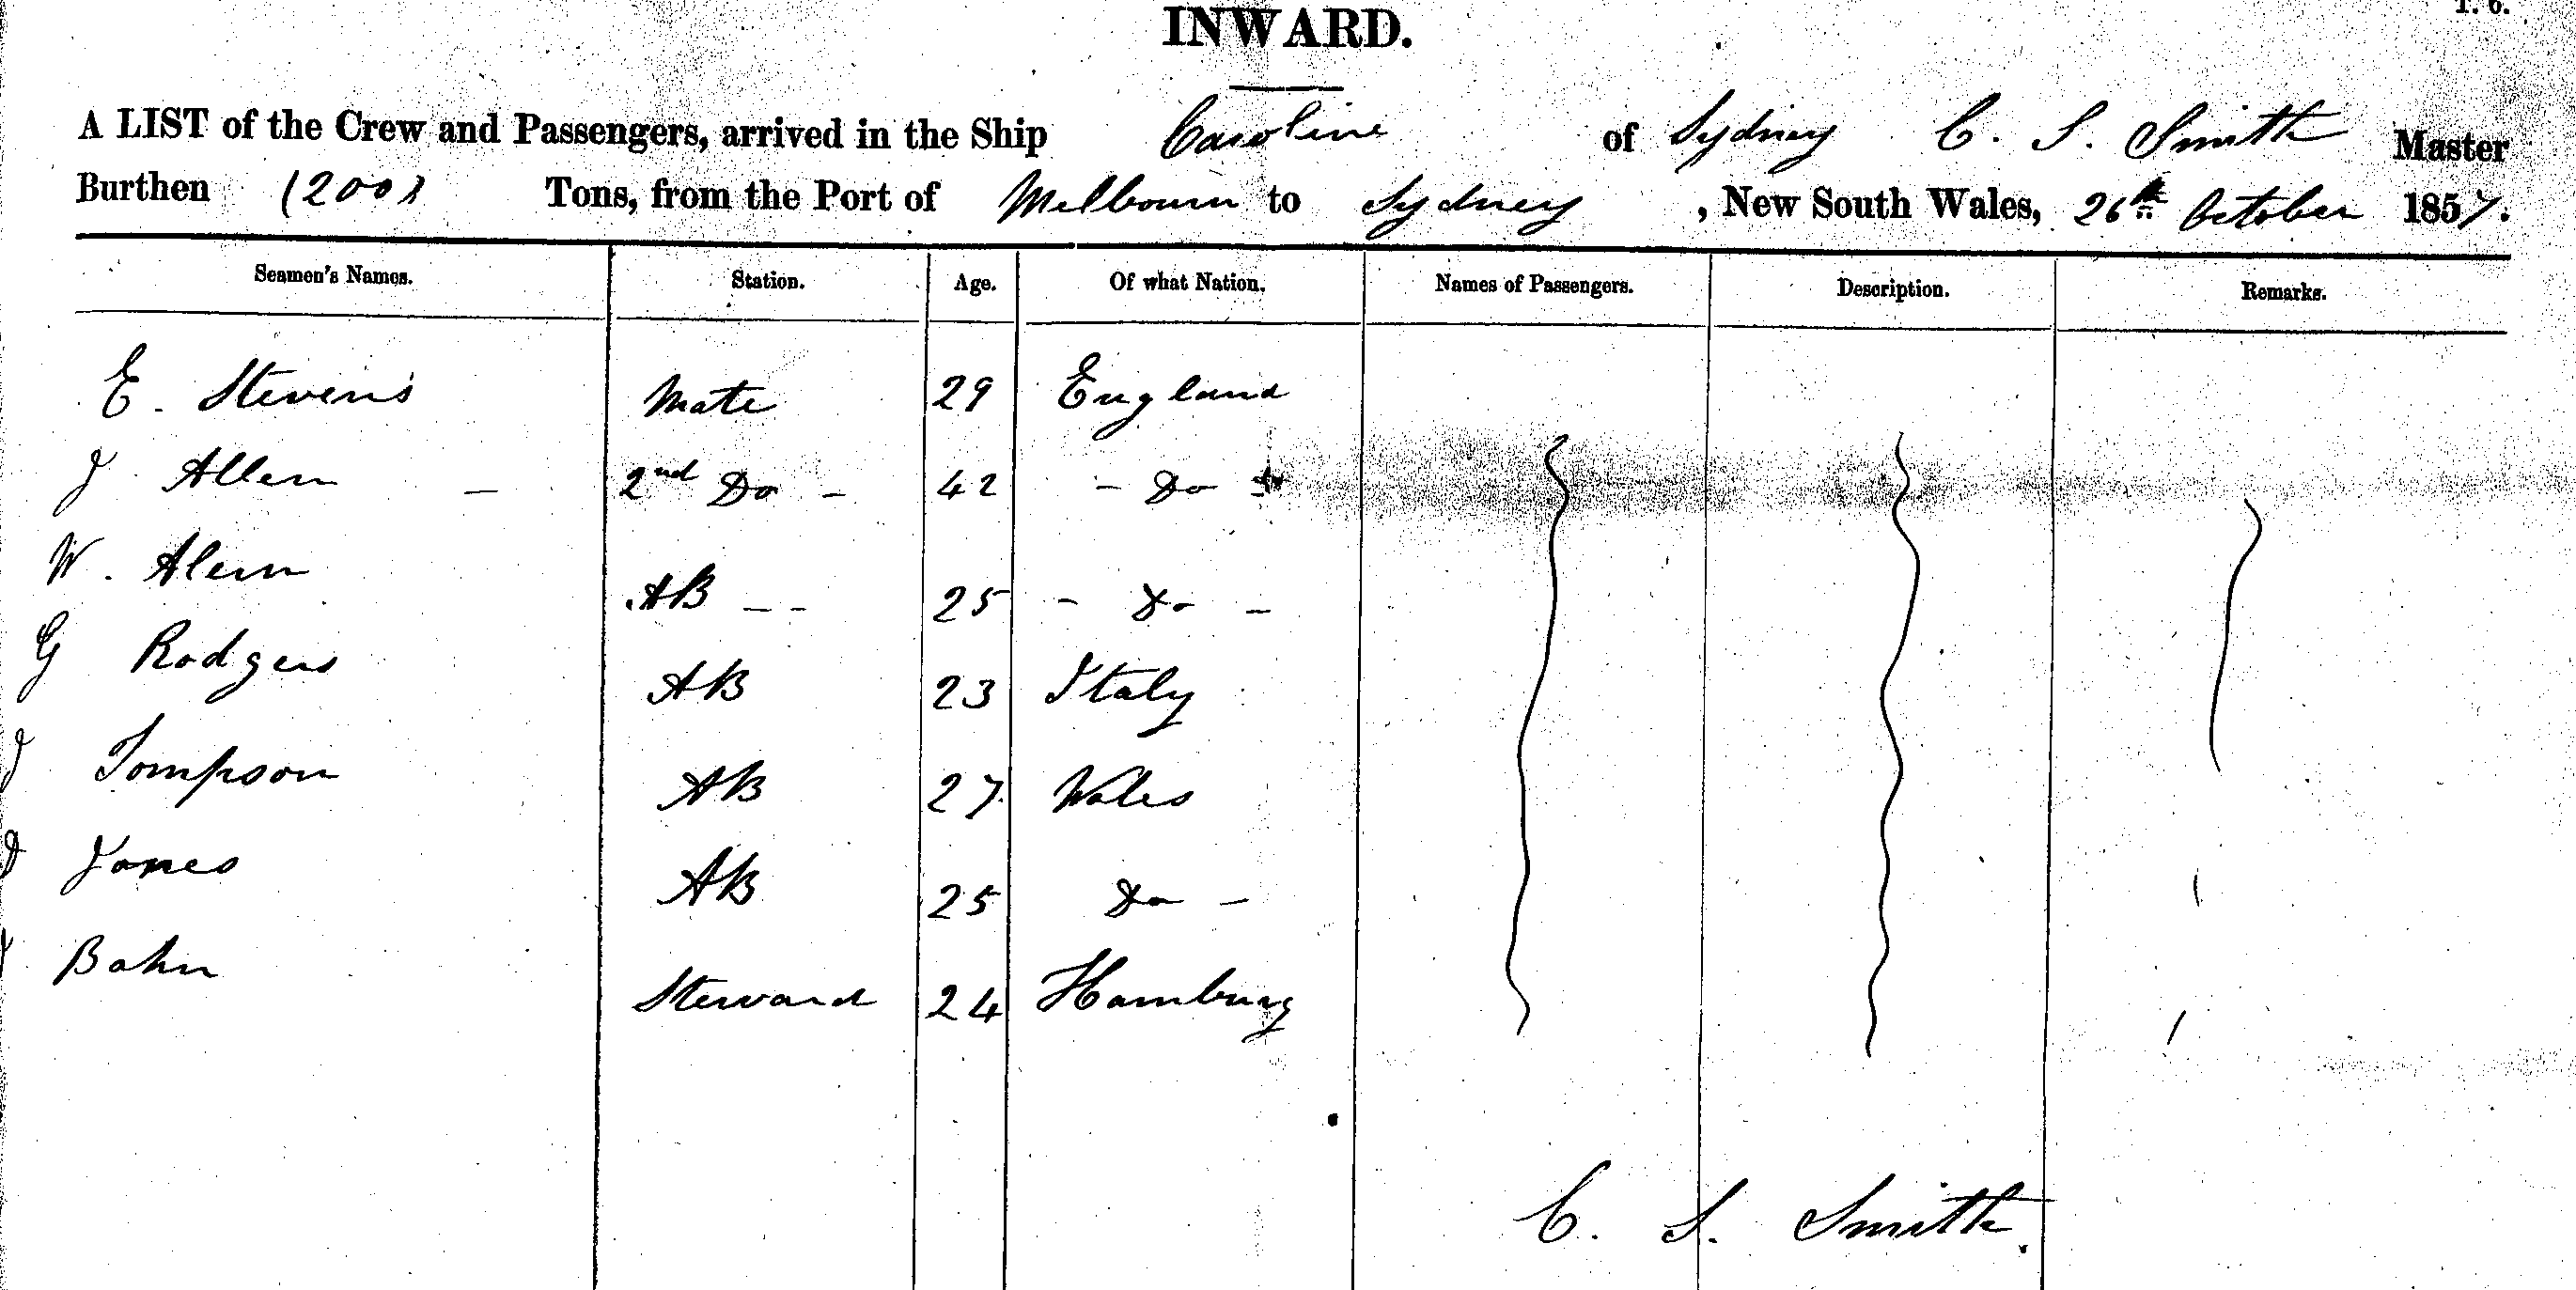 1. 6.
INWARD.
A LIST of the Crew and Passengers, arrived in the Ship Caroline of Sydney C. S. Smith Master
Burthen (200) Tons, from the Port of Melbourn to Sydney, New South Wales, 26th October 1857.
Seamen's Names. Station. Age. Of what Nation. Names of Passengers. Description. Remarks.
E. Stevens Mate 29 England
J Allen — 2nd Do — 42 — Do —
W. Alem AB — — 25 — Do —
G Rodgers AB 23 Italy
J Tompson AB 27 Wales
J Jones AB 25 Do —
Bahn Steward 24 Hamburg
C. S. Smith.